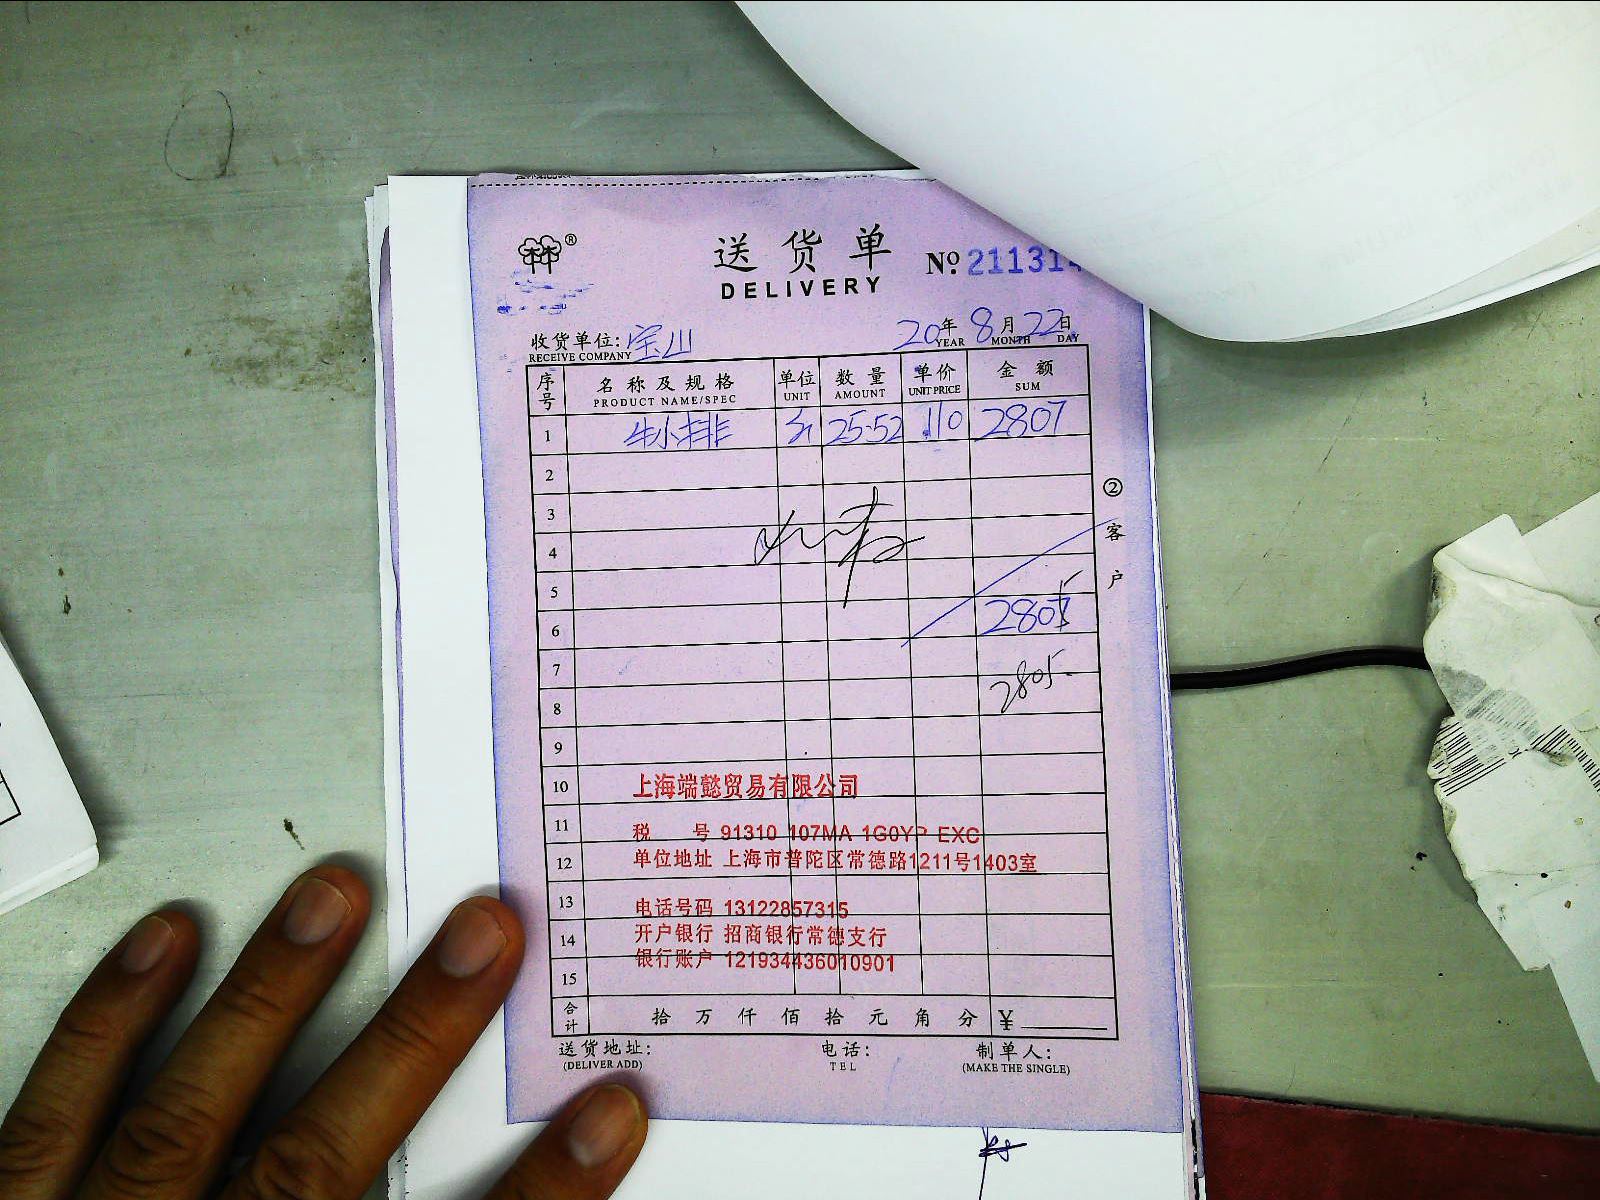 ®
送货单
DELIVERY
No. 21131
收货单位: 宝山
RECEIVE COMPANY
20年 8月 22日
YEAR MONTH DAY
序号 名称及规格 单位 数量 单价 金额
PRODUCT NAME/SPEC UNIT AMOUNT UNIT PRICE SUM
1 牛小排 斤 25.52 110 2807
2
3
4
5
6 2805
7
8 2805
9
10 上海端懿贸易有限公司
11 税 号 91310 107MA 1G0YP EXC
12 单位地址 上海市普陀区常德路1211号1403室
13 电话号码 13122857315
14 开户银行 招商银行常德支行
15 银行账户 121934436010901
合计 拾万仟佰拾元角分 ¥
送货地址: 电话: 制单人:
(DELIVER ADD) TEL (MAKE THE SINGLE)
② 客户